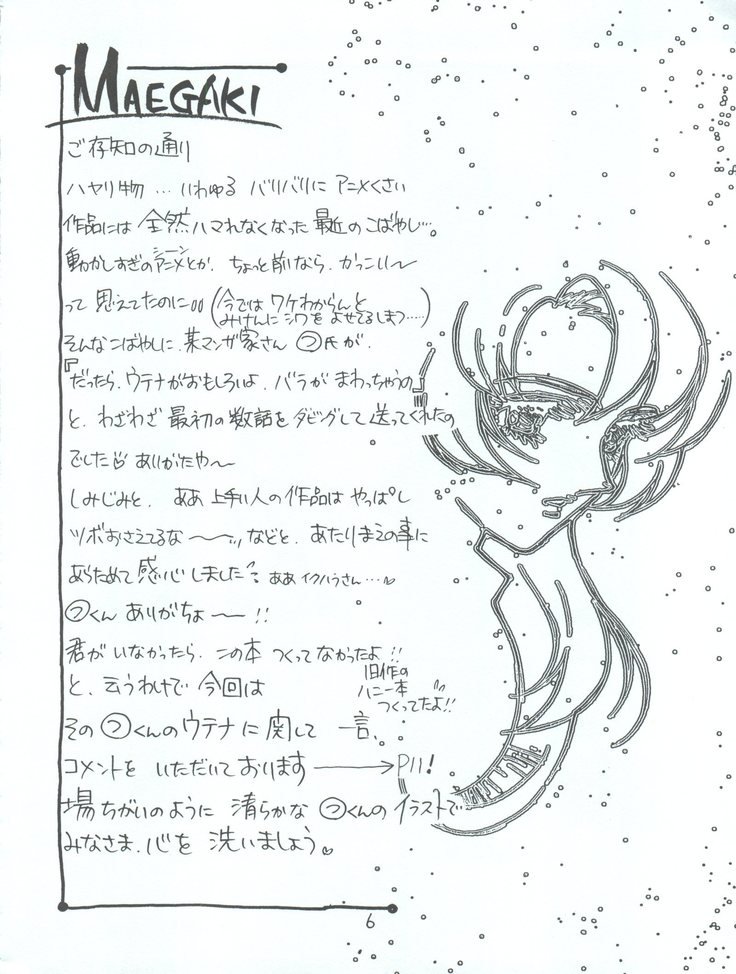 MAEGAKI
ご存知の通り
ハヤリ物…いわゆる バリバリに アニメくさい
作品には 全然ハマれなくなった 最近の こばやし…。
動かしすぎの
シーン
アニメとか、ちょっと前なら、かっこいい〜
って 思えてたのに(今では ワケわからんと
みけんに シワを よせてるしまつ……)
そんなこばやしに、某マンガ家さん つ氏が、
『だったら、ウテナがおもしろいよ、バラが まわっちゃうの』
と、わざわざ 最初の数話を ダビングして 送ってくれたの
でした ありがたや〜
しみじみと、ああ 上手い人の作品は やっぱし
ツボおさえてるな〜〜ッ などと、あたりまえの事に
あらためて 感心しました ああ イクハラさん…♡
つくん ありがちょ〜!!
君が いなかったら、この本 つくってなかったよ!!
旧作の
ハニー本
つくってたよ!!
と、云うわけで 今回は
その つくんのウテナに関して 一言、
コメントを いただいております →P11!
場ちがいのように 清らかな つくんの イラストで
みなさま、心を 洗いましょう。♡
6